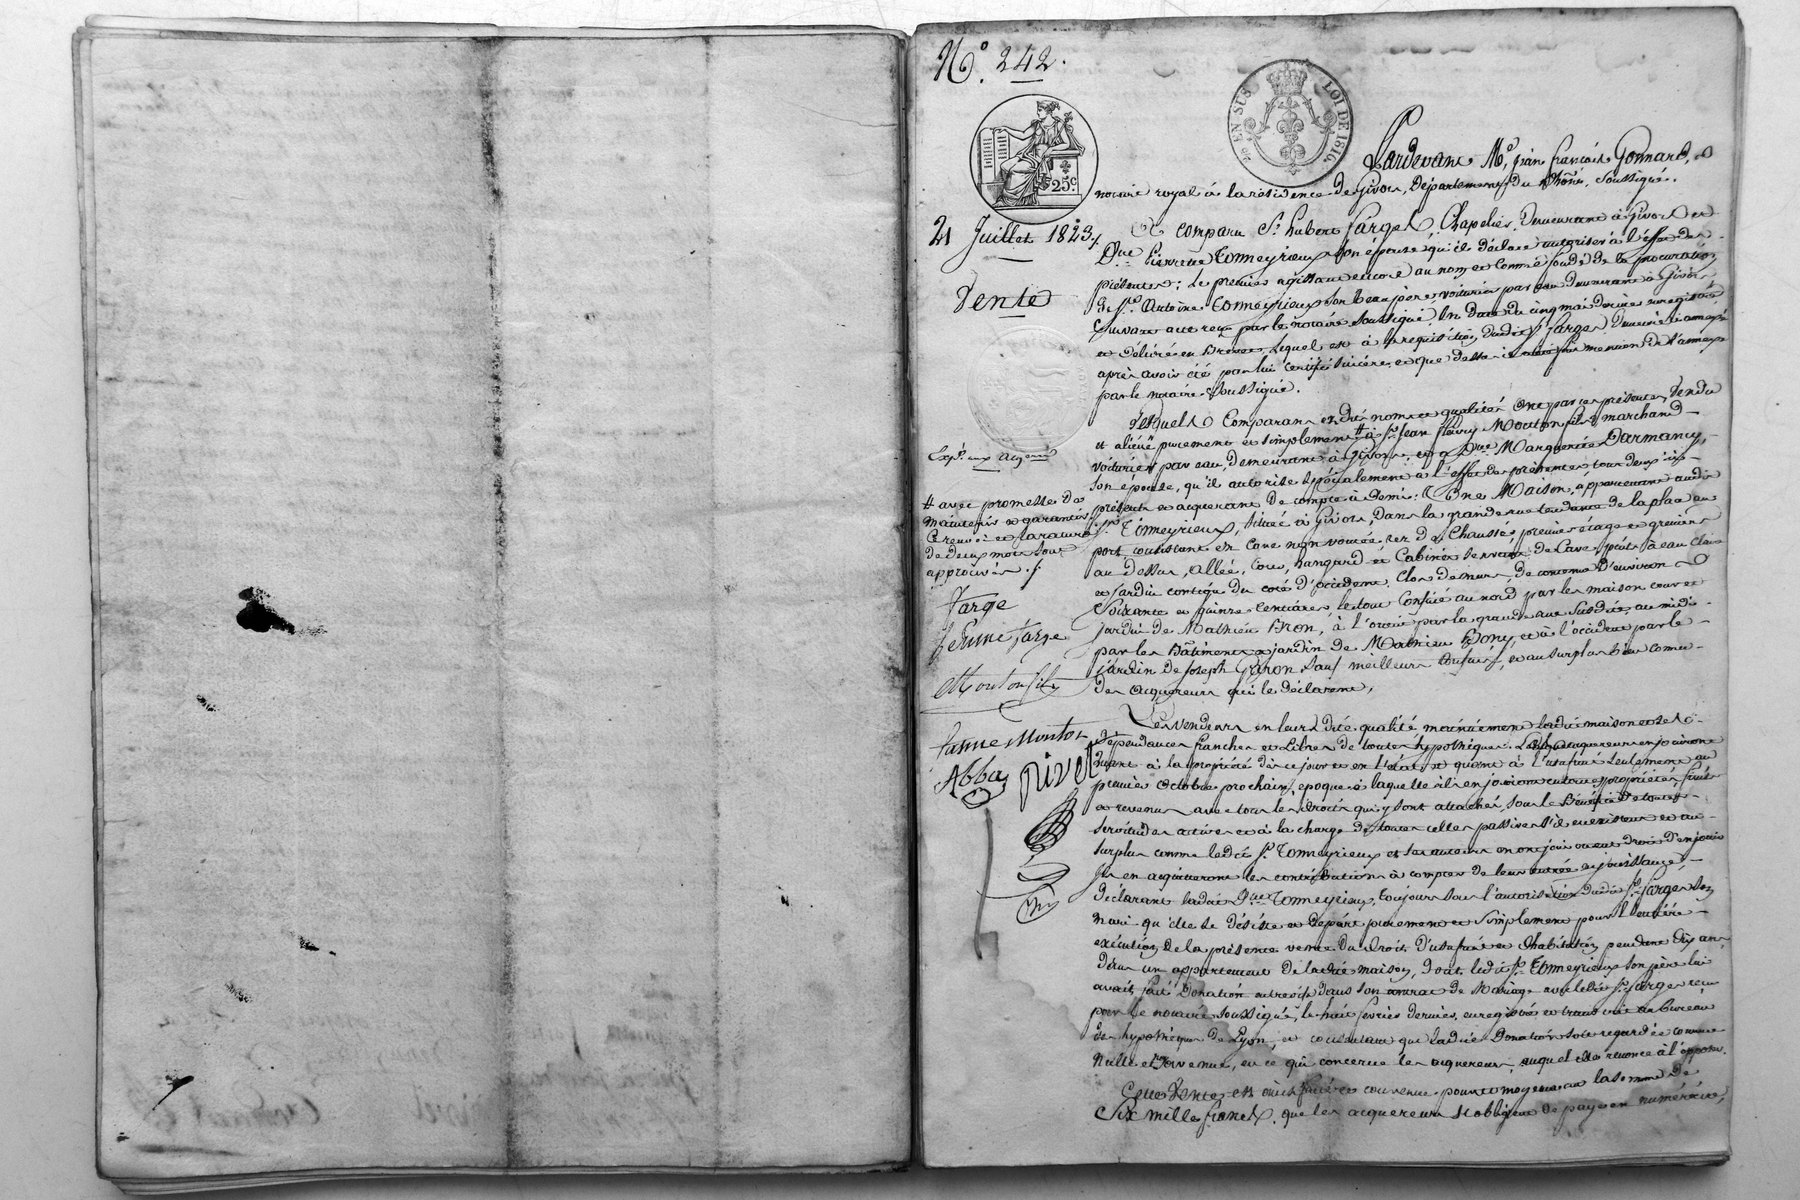 N.° 242.
EN SUS LOI DE 1816.
25 c
21 Juillet 1823.
Vente
Expon. aux acquereurs
# avec promesse de
maintenir et garantir
de deux mots sont
approuvés ./.
Farge
femme farge
Mouton fils
femme Mouton
Abba Rivet
Pardevant M.e Jean François Gonnard,
notaire royal à la résidence de Givors, Département du Rhône, Soussigné.
A comparu S.r hubert Farge, Chapelier, Demeurant à Givors et
D.me Pierrette Tomeyrieux son epouse qu'il déclare autoriser à l'effet des
présentes; Le premier agissant encore au nom et comme fondé de la procuration
de S.r Antoine Tomeyrieux son beau père voiturier par eau demeurant à Givors
Suivant acte reçu par le notaire soussigné en date du cinq mai dernier enregistré
et délivré en Brevet, lequel est à la réquisition dudit S.r Farge demeuré annexé
après avoir été par lui certifié sincère, et que dessus il a été fait mention de l'annexe
par le notaire Soussigné.
Lesquels Comparans esdits noms et qualités Ont par ces présentes, Vendu
et aliéné purement et simplement # à S.r Jean fleury Mouton fils marchand
voiturier par eau, demeurant à Givors, et a D.me Marguerite Darmancy,
son épouse, qu'il autorise spécialement à l'effet des présentes tous deux ici
présents et acquerant de compte à demi; Une Maison, appartenant audit
S.r Tomeyrieux, située à Givors, Dans la grande rue tendante de la place au
port, consistant en Cave non voutée, rez de Chaussée, premier étage et greniers
au dessus, allée, cour, hangard et Cabinet servant de Cave, puits à eau claire
et jardin contigu du coté d'occident, Clos de murs, de contenue d'environ
Soixante et quinze Centiares, le tout Confiné au nord par les maison cour et
jardin de Mathieu Bron, à l'orient par la grande rue Susdite, au midi
par les Bâtiments et jardin de Mathieu Bony, et à l'occident par le
jardin de Joseph Garon, Sauf meilleurs Confins, et au surplus bien connu
des acquereurs qui le déclarent.
Les vendeurs en leurs dite qualité maintiennent ladite maison et ses
dépendances franches et Libres de toutes hypothèques. Les acquereurs en jouiront
quant à la propriété dès ce jour et en l'état, et quant à l'usufruit seulement au
premier octobre prochain, epoque à laquelle ils en jouiront en toutes propriétés fruits
et revenus avec tous les droits qui y sont attachés, sous le Bénéfice de toutes
servitudes actives et à la charge de toutes celles passives s'il en existent et au
surplus comme ledit S.r Tomeyrieux et ses auteurs en ont joui ou eut droit d'en jouir
Ils en acquiteront les contributions à compter de leur entrée en jouissance,
Déclarant ladite D.me Tomeyrieux, toujours sous l'autorisation dudit S.r Farge son
mari qu'elle se désiste et départ purement et simplement pour l'entière
exécution de la présente vente du Droit d'usufruit et d'habitation pendant dix ans
dans un appartement de ladite maison, dont ledit S.r Tomeyrieux son père lui
avait fait Donation autrefois dans son contrat de Mariage avec ledit S.r Farge reçu
par le notaire soussigné, le huit fevrier dernier, enregistré et transcrit au Bureau
des hypothèques de Lyon, et consentant que ladite Donation soit regardée comme
Nulle et non avenue, en ce qui concerne les acquereurs, auquel elle renonce à l'opposer.
Cette Vente est ainsi faite et convenue pour et moyennant la somme de
Six mille francs, que les acquereurs s'obligent de payer en numéraire,